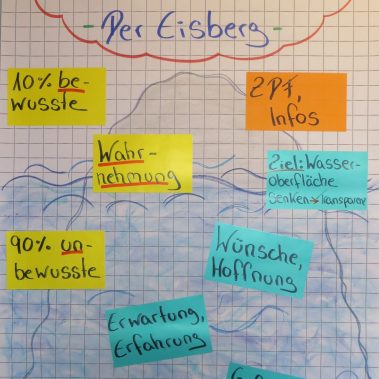 - Der Eisberg -
10% be-
wusste
ZDF,
Infos
Wahr-
nehmung
Ziel: Wasser-
oberfläche
senken → Transparenz
90% un-
bewusste
Wünsche,
Hoffnung
Erwartung,
Erfahrung